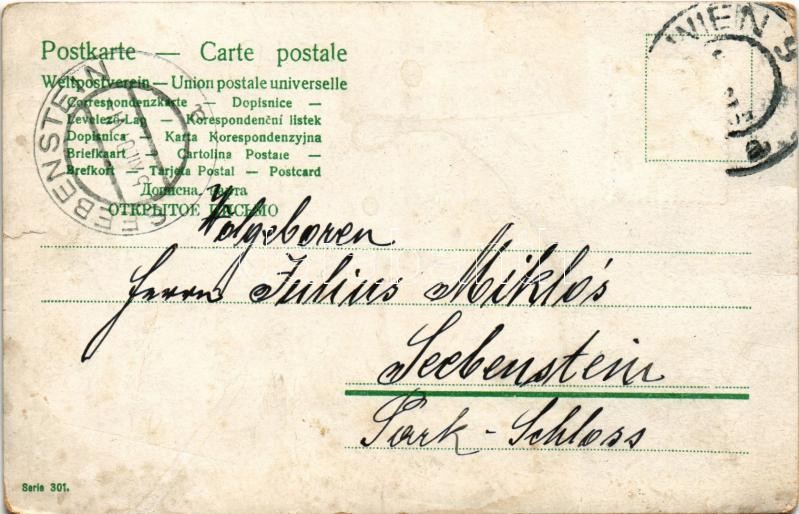 Postkarte — Carte postale
Weltpostverein — Union postale universelle
Correspondenzkarte — Dopisnice —
Levelező-Lap — Korespondenční listek
Dopisnica — Karta Korespondenzyjna
Briefkaart — Cartolina Postale —
Brefkort — Tarjeta Postal — Postcard
Дописна карта
ОТКРЫТОЕ ПИСЬМО
SEEBENSTEIN
WIEN 9
Wolgeboren
Herrn Julius Miklós
Seebenstein
Park-Schloss
Serie 301.